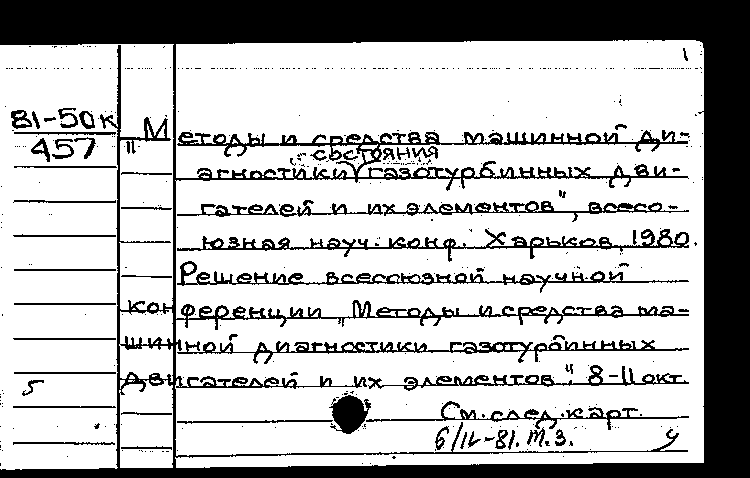 1
81-50к
457
"Методы и средства машинной ди-
состояния
агностики газотурбинных дви-
гателей и их элементов", всесо-
юзная науч. конф. Харьков, 1980.
Решение всесоюзной научной
конференции "Методы и средства ма-
шинной диагностики газотурбинных
двигателей и их элементов". 8-11 окт.
5
См. след. карт.
6/IV-81. т.з.